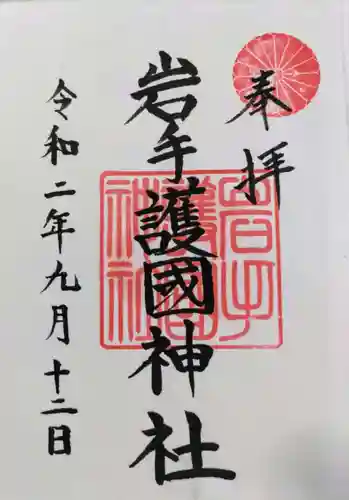 奉拝
岩手護國神社
岩手
護國
神社
令和二年九月十二日